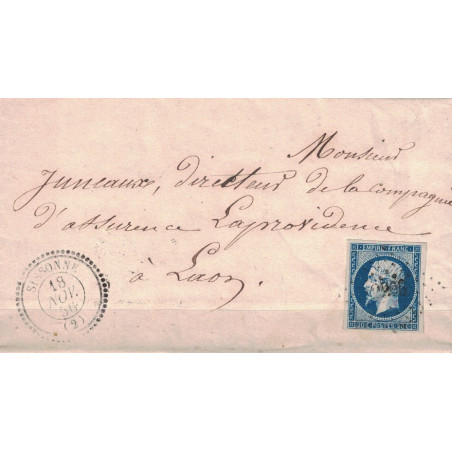 Monsieur
Juneaux, directeur de la compagnie
d'assurence Laprovidence
à Laon.
SISSONNE
18
NOV.
56
(2)
EMPIRE FRANC.
20 C. POSTES 20 C.